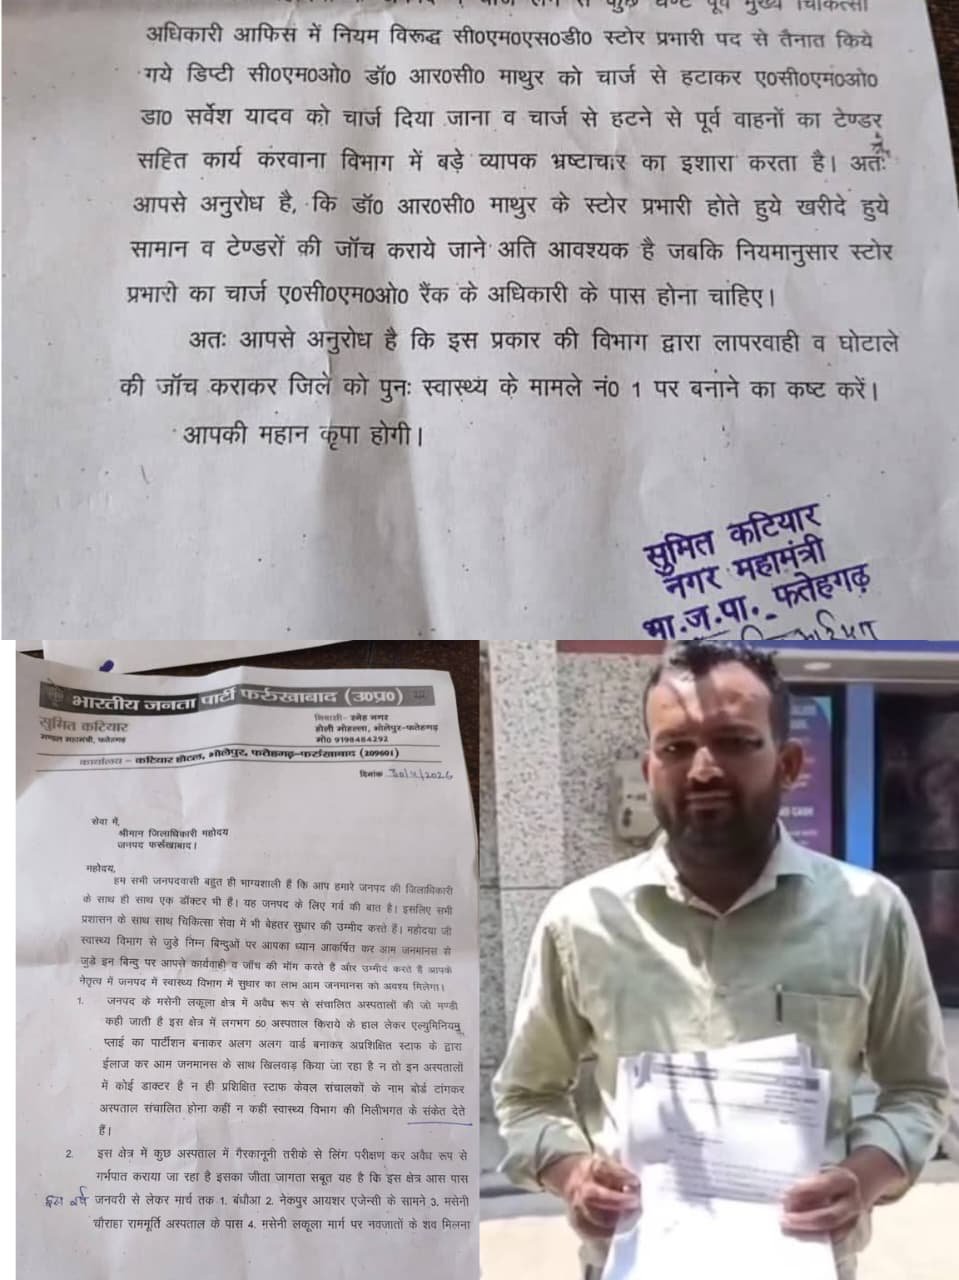 अधिकारी आफिस में नियम विरूद्ध सी0एम0एस0डी0 स्टोर प्रभारी पद से तैनात किये
गये डिप्टी सी0एम0ओ0 डॉ0 आर0सी0 माथुर को चार्ज से हटाकर ए0सी0एम0ओ0
डा0 सर्वेश यादव को चार्ज दिया जाना व चार्ज से हटने से पूर्व वाहनों का टेण्डर
सहित कार्य करवाना विभाग में बड़े व्यापक भ्रष्टाचार का इशारा करता है। अतः
आपसे अनुरोध है, कि डॉ0 आर0सी0 माथुर के स्टोर प्रभारी होते हुये खरीदे हुये
सामान व टेण्डरों की जॉच कराये जाने अति आवश्यक है जबकि नियमानुसार स्टोर
प्रभारी का चार्ज ए0सी0एम0ओ0 रैंक के अधिकारी के पास होना चाहिए।
अतः आपसे अनुरोध है कि इस प्रकार की विभाग द्वारा लापरवाही व घोटाले
की जॉच कराकर जिले को पुनः स्वास्थ्य के मामले नं0 1 पर बनाने का कष्ट करें।
आपकी महान कृपा होगी।
सुमित कटियार
नगर महामंत्री
भा.ज.पा. फतेहगढ़
भारतीय जनता पार्टी फर्रुखाबाद (उ0प्र0)
सुमित कटियार
मण्डल महामंत्री, फतेहगढ़
निवासी- स्नेह नगर
होली मोहल्ला, भोलेपुर-फतेहगढ़
मो0 9198484292
कार्यालय – कटियार होटल, भोलेपुर, फतेहगढ़-फर्रुखाबाद (209601)
दिनांक
सेवा में,
श्रीमान जिलाधिकारी महोदय
जनपद फर्रुखाबाद।
महोदय,
हम सभी जनपदवासी बहुत ही भाग्यशाली हैं कि आप हमारे जनपद की जिलाधिकारी
के साथ ही साथ एक डॉक्टर भी है। यह जनपद के लिए गर्व की बात है। इसलिए सभी
प्रशासन के साथ साथ चिकित्सा सेवा में भी बेहतर सुधार की उम्मीद करते हैं। महोदया जी
स्वास्थ्य विभाग से जुडे निम्न बिन्दुओं पर आपका ध्यान आकर्षित कर आम जनमानस से
जुडे इन बिन्दु पर आपसे कार्यवाही व जॉच की मॉग करते है और उम्मीद करते है आपके
नेतृत्व में जनपद में स्वास्थ्य विभाग में सुधार का लाभ आम जनमानस को अवश्य मिलेगा।
1. जनपद के मसेनी लकूला क्षेत्र में अवैध रूप से संचालित अस्पतालों की जो मण्डी
कही जाती है इस क्षेत्र में लगभग 50 अस्पताल किराये के हाल लेकर एल्युमिनियम
प्लाई का पार्टीशन बनाकर अलग अलग वार्ड बनाकर अप्रशिक्षित स्टाफ के द्वारा
ईलाज कर आम जनमानस के साथ खिलवाड़ किया जा रहा है न तो इन अस्पतालों
में कोई डाक्टर है न ही प्रशिक्षित स्टाफ केवल संचालकों के नाम बोर्ड टांगकर
अस्पताल संचालित होना कहीं न कहीं स्वास्थ्य विभाग की मिलीभगत के संकेत देते
हैं।
2. इस क्षेत्र में कुछ अस्पताल में गैरकानूनी तरीके से लिंग परीक्षण कर अवैध रूप से
गर्भपात कराया जा रहा है इसका जीता जागता सबूत यह है कि इस क्षेत्र आस पास
इस वर्ष जनवरी से लेकर मार्च तक 1. बंधौआ 2. नेकपुर आयशर एजेन्सी के सामने 3. मसेनी
चौराहा राममूर्ति अस्पताल के पास 4. मसेनी लकूला मार्ग पर नवजातों के शव मिलना